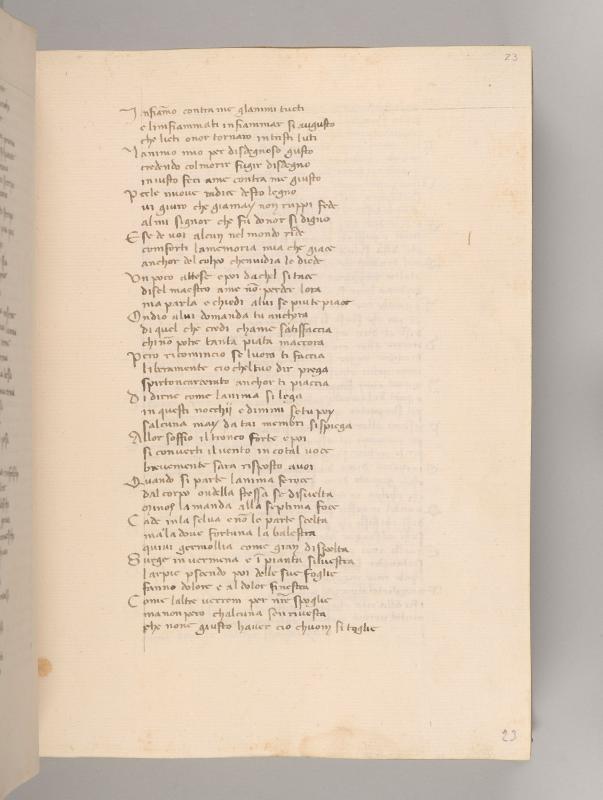 23
Infiamo contra me glanimi tucti
e linfiammati infiammar si augusto
che lieti onor tornaro in tristi luti
Lanimo mio per disdegnoso gusto
credendo col morir fugir disdegno
iniusto feci ame contra me giusto
Perle nuove radice desto legno
vi giuro che giamay non ruppi fede
al mi signor che fu donor si digno
E se de voi alcun nel mondo riede
conforti lamemoria mia che giace
anchor del colpo chenvidia le diede
Un poco attese e poi dachel si tace
disel maestro ame nõ perder lora
ma parla e chiedi alui se piu te piace
Ondio alui domanda tu anchora
di quel che credi chame satisfaccia
chi nõ potre tanta pieta maccora
Pero ricomincio se luom ti faccia
liberamente cio cheltuo dir prega
spirtoncarcerato anchor ti piaccia
Di dirne come lanima si lega
in questi nocchii e dimmi se tu poy
salcuna may da tai membri si spiega
Allor soffio il tronco forte e poi
si converti il vento in cotal voce
brevemente sara risposto avoi
Quando si parte lanima feroce
dal corpo ondella stessa se disvelta
minos la manda alla septima foce
Cade in la selva e nõ le parte scelta
ma la dove fortuna la balestra
quivi germollia come gran di spelta
Surge in vermena e ĩ pianta silvestra
larpie pscendo poi delle sue foglie
fanno dolore e al dolor finestra
Come laltre verrem per nr̃e spoglie
ma non pero chalcuna sen rivesta
che none giusto haver cio chuom si toglie
23